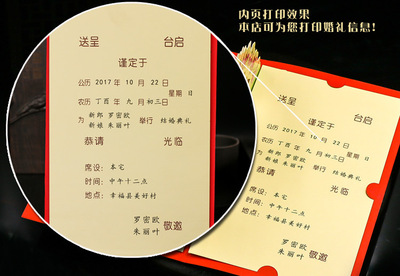 内页打印效果
本店可为您打印婚礼信息!
送呈 台启
谨定于
公历 2017 年 10 月 22 日
星期 日
农历 丁酉 年 九 月初三日
为 新郎 罗密欧
新娘 朱丽叶 举行 结婚典礼
恭请 光临
席设: 本宅
时间: 中午十二点
地点: 幸福县美好村
罗密欧
朱丽叶 敬邀
送呈 台启
谨定于
公历 2017 年 10 月 22 日
星期 日
农历 丁酉 年 九 月初三日
为 新郎 罗密欧
新娘 朱丽叶 举行 结婚典礼
恭请 光临
席设: 本宅
时间: 中午十二点
地点: 幸福县美好村
罗密欧
朱丽叶 敬邀